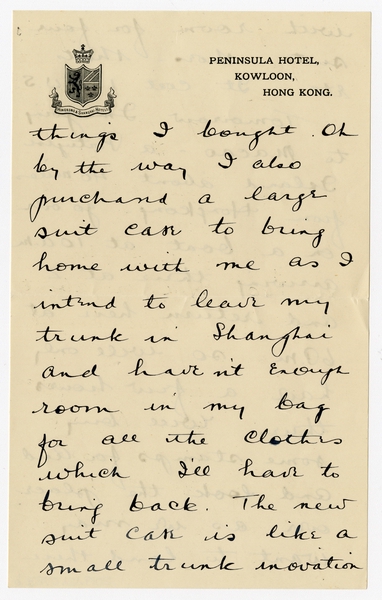 PENINSULA HOTEL,
KOWLOON,
HONG KONG.
things I bought. Oh
by the way I also
purchand a large
suit case to bring
home with me as I
intend to leave my
trunk in Shanghai
and have n't enough
room in my bag
for all the clothes
which I'll have to
bring back. The new
suit case is like a
small trunk inovation